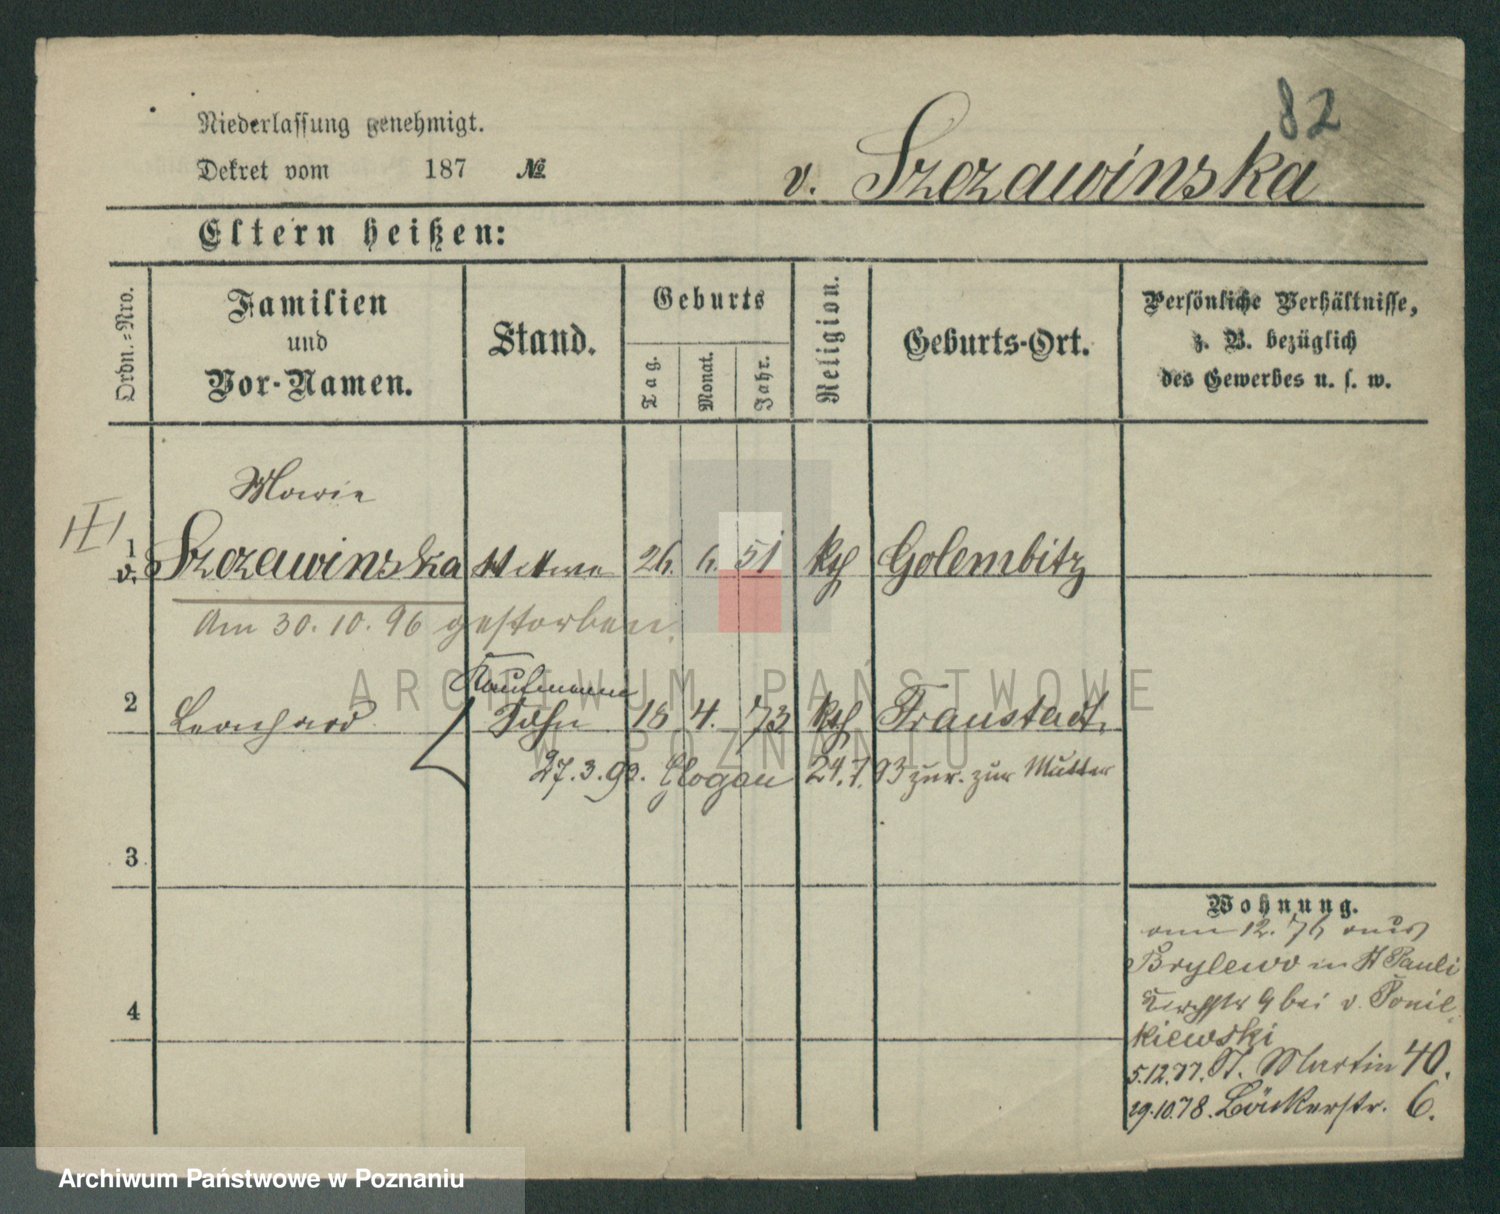 82
Niederlassung genehmigt.
Dekret vom 187 №
v. Szczawinska
Eltern heißen:
Ordn.-Nro.
Familien
und
Vor-Namen.
Stand.
Geburts
Tag.
Monat.
Jahr.
Religion.
Geburts-Ort.
Persönliche Verhältnisse,
z. B. bezüglich
des Gewerbes u. s. w.
Marie
1 v. Szczawinska Wittwe 26. 6. 51 kth Golembitz
Am 30.10.96 gestorben.
Kaufmann
2 Leonhard Sohn 18 4. 73 kth Fraustadt.
27.3.93. Glogau 24.7.93 zur. zur Mutter
3
4
Wohnung.
12. 76 aus
Brylewo in St Pauli
Kirchstr 9 bei v. Ponil-
kiewski
5.12.77. St. Martin 40.
29.10.78. Bäckerstr. 6.
ARCHIWUM PAŃSTWOWE
W POZNANIU
Archiwum Państwowe w Poznaniu